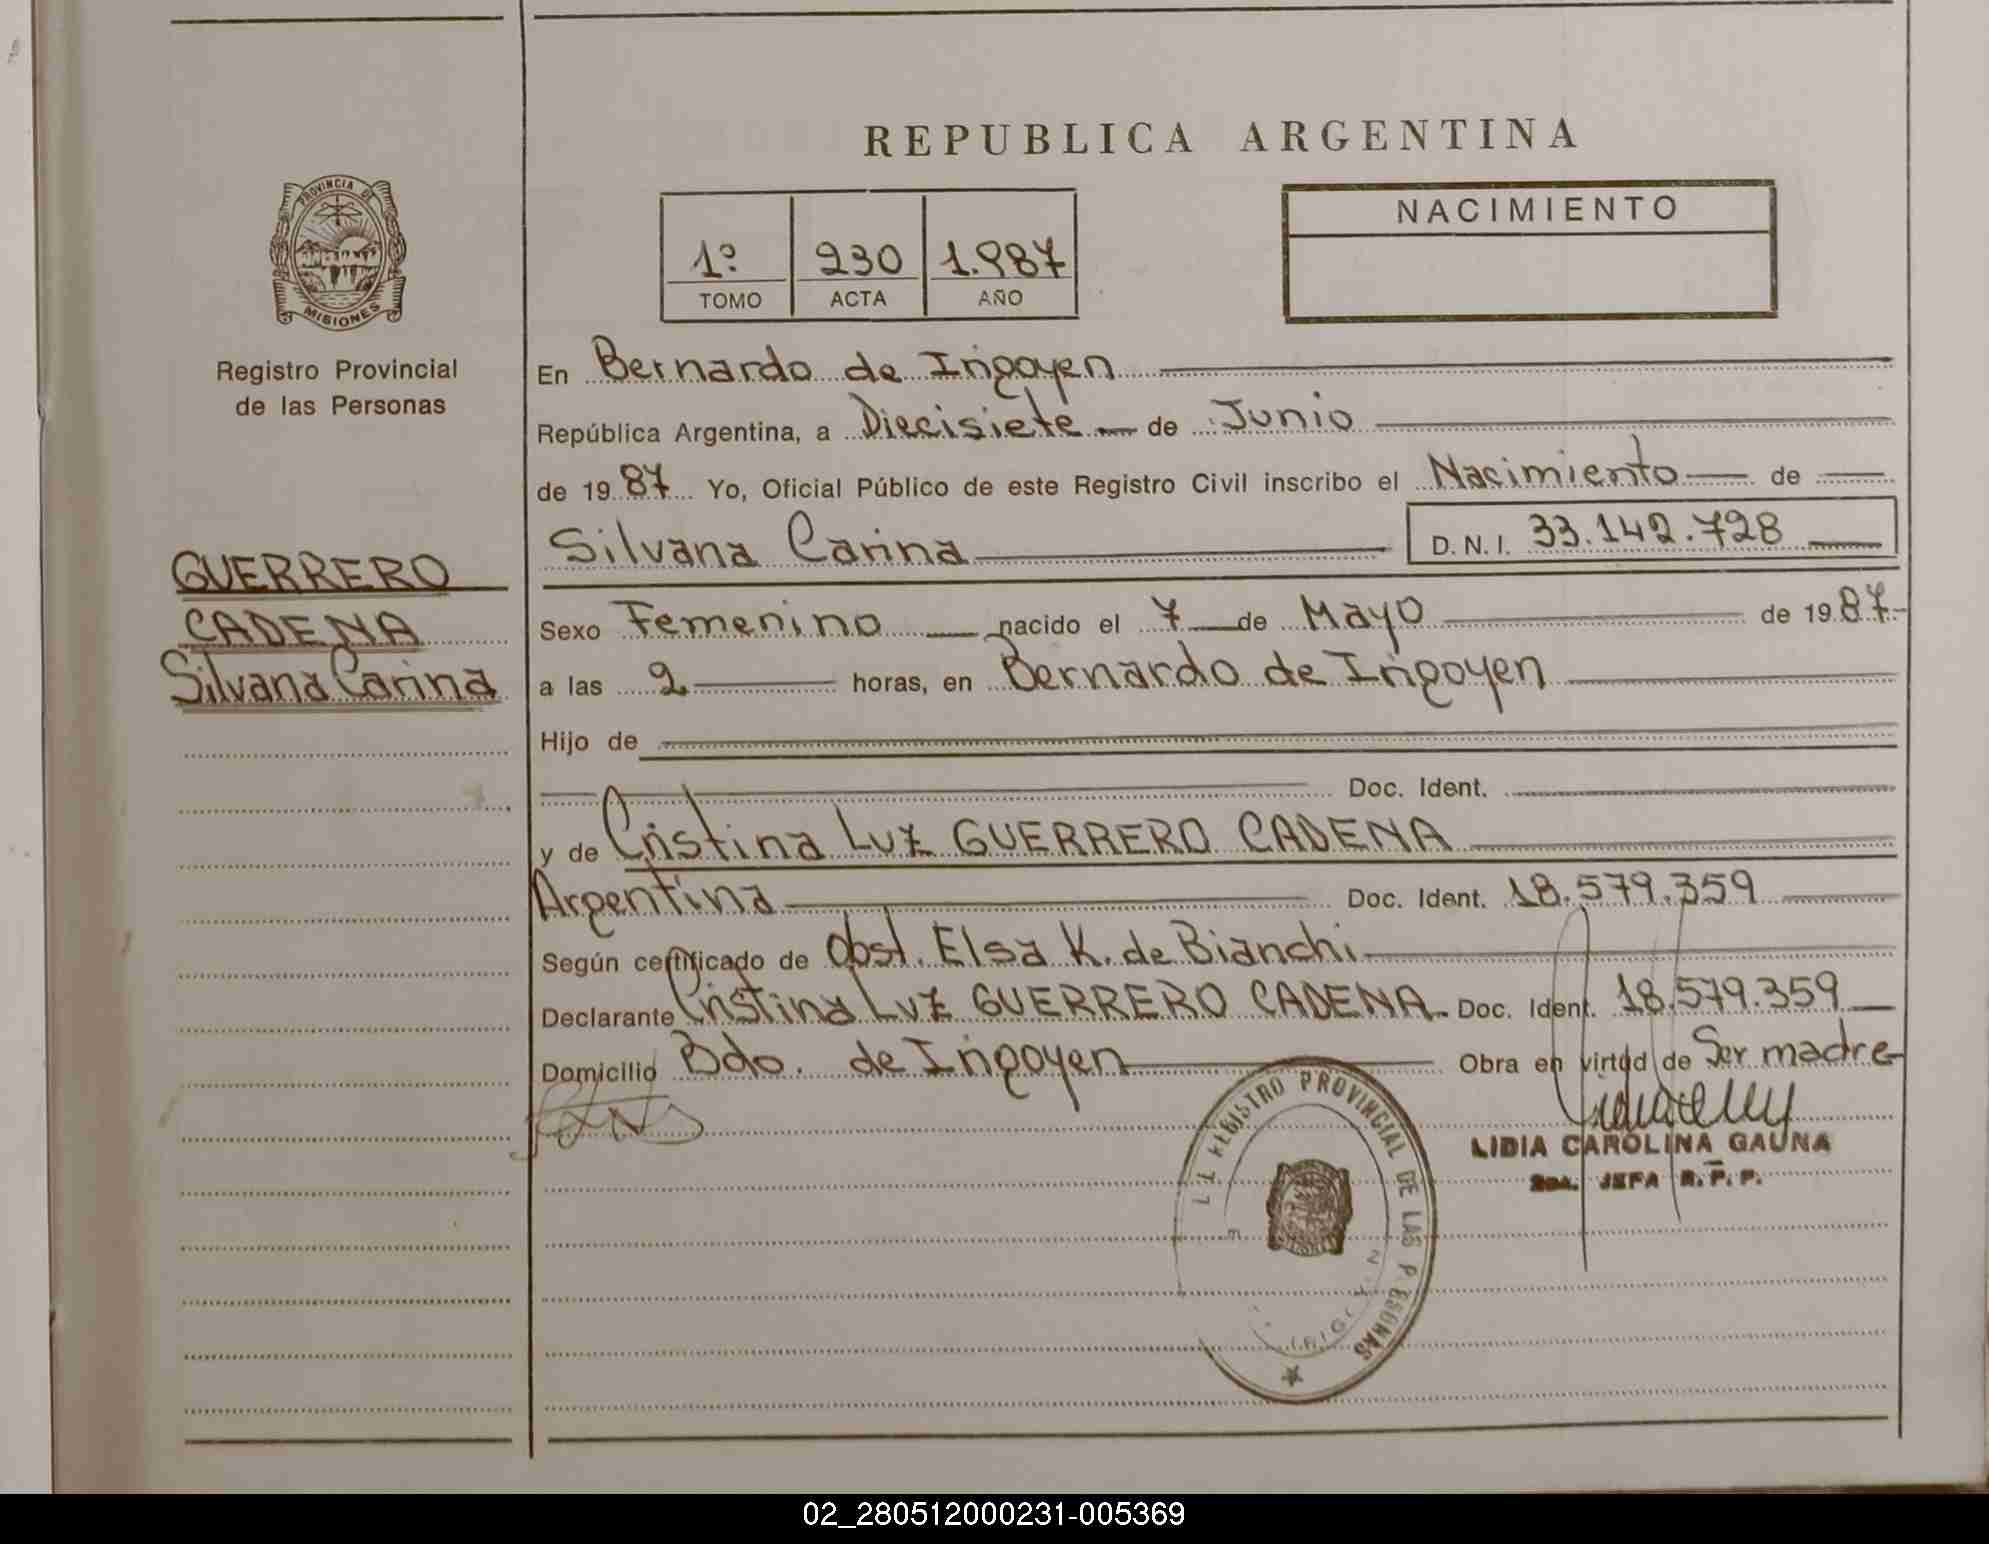 REPUBLICA ARGENTINA
PROVINCIA DE
MISIONES
Registro Provincial
de las Personas
1º 230 1.987
TOMO ACTA AÑO
NACIMIENTO
GUERRERO
CADENA
Silvana Carina
En Bernardo de Irigoyen
República Argentina, a Diecisiete de Junio
de 1987 Yo, Oficial Público de este Registro Civil inscribo el Nacimiento de
Silvana Carina D.N.I. 33.142.728
Sexo Femenino nacido el 7 de Mayo de 1987
a las 2 horas, en Bernardo de Irigoyen
Hijo de
Doc. Ident.
y de Cristina Luz GUERRERO CADENA
Argentina Doc. Ident. 18.579.359
Según certificado de Obst. Elsa K. de Bianchi
Declarante Cristina Luz GUERRERO CADENA Doc. Ident. 18.579.359
Domicilio Bdo. de Irigoyen Obra en virtud de Ser madre
REGISTRO PROVINCIAL DE LAS
LIDIA CAROLINA GAUNA
JEFA R.P.P.
02_280512000231-005369